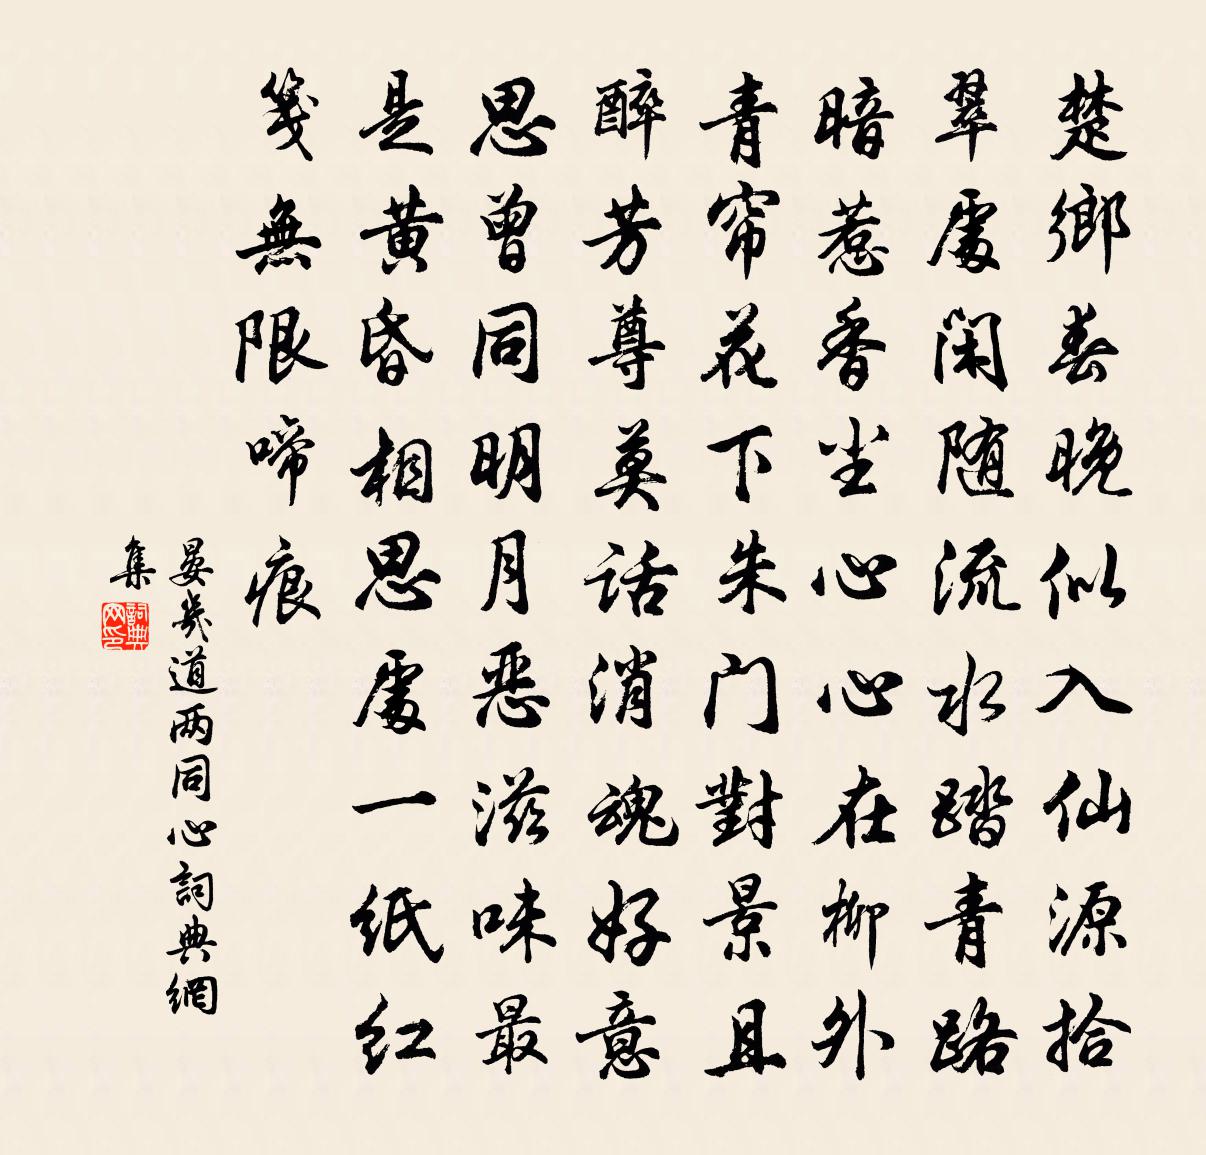 楚鄉春晚似入仙源拾
翠處闲随流水踏青路
暗惹香尘心心在柳外
青帘花下朱门對景且
醉芳尊莫话消魂好意
思曾同明月恶滋味最
是黄昏相思處一纸红
箋無限啼痕
晏幾道两同心詞典網
集
詞典网印